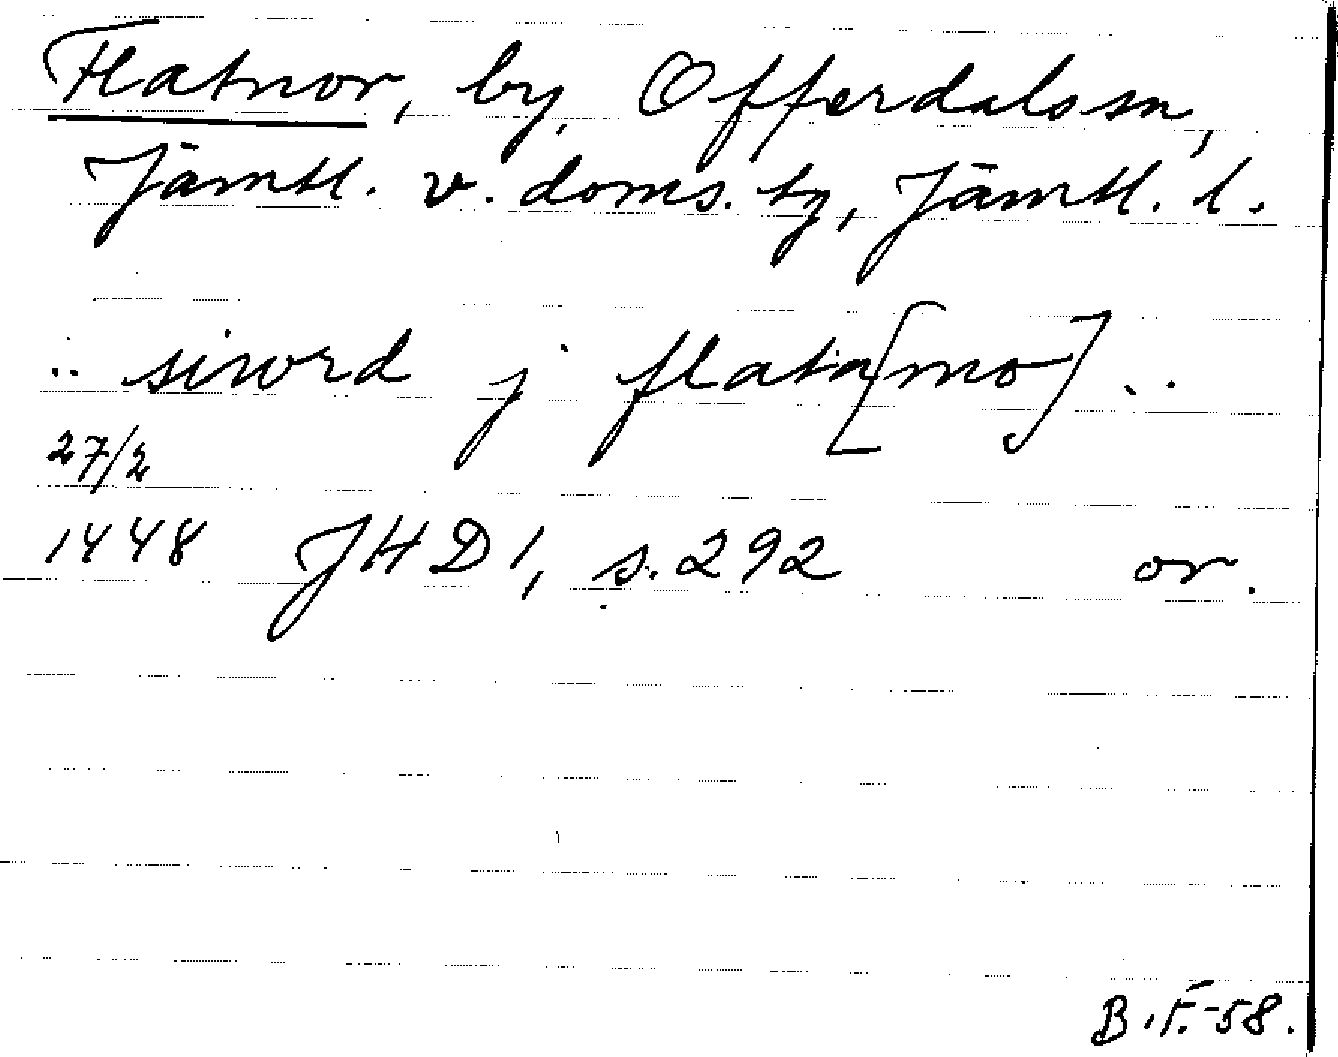 Flatnor, by, Offerdals sn,
Jämtl. v. doms. tg, Jämtl. l.
.. siword j flata[mo] ..
27/2
1448 JHD 1, s. 292 or.
B.F.-58.